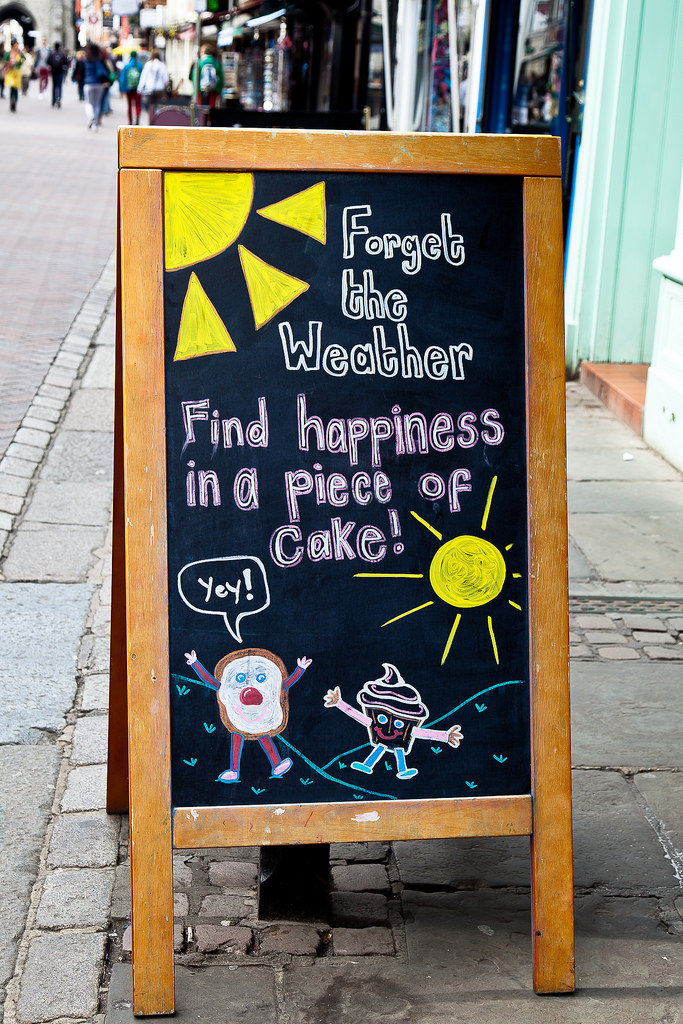 Forget
the
Weather
Find happiness
in a piece of
cake!
Yey!